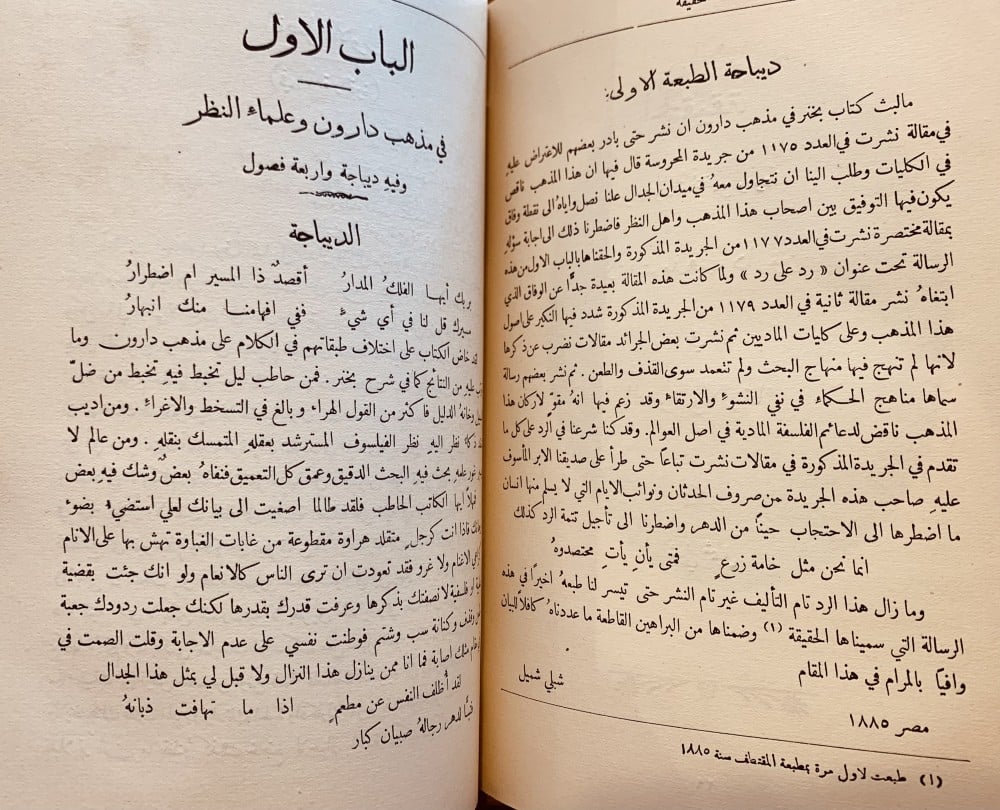 الحقيقة
ديباحة الطبعة الاولى
مالبث كتاب بخنر في مذهب دارون ان نشر حتى بادر بعضهم للاعتراض عليهِ
في مقالة نشرت في العدد ١١٧٥ من جريدة المحروسة قال فيها ان هذا المذهب ناقص
في الكليات وطلب الينا ان نتجاول معهُ في ميدان الجدال علنا نصل واياهُ الى نقطة وفاق
يكون فيها التوفيق بين اصحاب هذا المذهب واهل النظر فاضطرنا ذلك الى اجابة سؤلهِ
بمقالة مختصرة نشرت في العدد ١١٧٧ من الجريدة المذكورة والحقناها بالباب الاول من هذه
الرسالة تحت عنوان « رد على رد » ولما كانت هذه المقالة بعيدة جدًّا عن الوفاق الذي
ابتغاهُ نشر مقالة ثانية في العدد ١١٧٩ من الجريدة المذكورة شدد فيها النكير على اصول
هذا المذهب وعلى كليات الماديين ثم نشرت بعض الجرائد مقالات نضرب عن ذكرها
لانها لم تنهج فيها منهاج البحث ولم تتعمد سوى القذف والطعن . ثم نشر بعضهم رسالة
سماها مناهج الحكماء في نفي النشوء والارتقاء وقد زعم فيها انهُ مقوّ لاركان هذا
المذهب ناقض لدعائم الفلسفة المادية في اصل العوالم . وقد كنا شرعنا في الرد على كل ما
تقدم في الجريدة المذكورة في مقالات نشرت تباعًا حتى طرأ على صديقنا الابر المأسوف
عليهِ صاحب هذه الجريدة من صروف الحدثان ونوائب الايام التي لا يسلم منها انسان
ما اضطرها الى الاحتجاب حينًا من الدهر واضطرنا الى تأجيل تتمة الرد كذلك
انما نحن مثل خامة زرعٍ فمتى يأنِ يأتِ محتصدوهُ
وما زال هذا الرد تام التأليف غير تام النشر حتى تيسر لنا طبعهُ اخيرًا في هذه
الرسالة التي سميناها الحقيقة (١) وضمناها من البراهين القاطعة ما عددناهُ كافلاً للبيان
وافيًا بالمرام في هذا المقام
شبلي شميل
مصر ١٨٨٥
(١) طبعت لاول مرة بمطبعة المقتطف سنة ١٨٨٥
الباب الاول
في مذهب دارون وعلماء النظر
وفيهِ ديباجة واربعة فصول
الديباجة
بربك أيها الفلك المدارُ أقصدٌ ذا المسير ام اضطرارُ
مسيرك قل لنا في أي شيءٍ ففي افهامنا منك انبهارُ
خاض الكتاب على اختلاف طبقاتهم في الكلام على مذهب دارون وما
عليهِ من النتائج كما في شرح بخنر . فمن حاطب ليل تخبط فيهِ تخبط من ضلّ
وخانهُ الدليل فاكثر من القول الهراء وبالغ في التسخط والاغراء . ومن اديب
نظر اليهِ نظر الفيلسوف المسترشد بعقلهِ المتمسك بنقلهِ . ومن عالم لا
علمهِ بحث فيهِ البحث الدقيق وعمق كل التعميق فنفاهُ بعضٌ وشك فيهِ بعض
فهلاً ايها الكاتب الحاطب فلقد طالما اصغيت الى بيانك لعلي استضيء بضوء
فاذا انت كرجلٍ متقلد هراوة مقطوعة من غابات الغباوة تهش بها على الانام
الاغنام ولا غرو فقد تعودت ان ترى الناس كالانعام ولو انك جئت بقضية
او فلسفية لانصفتك بذكرها وعرفت قدرك بقدرها لكنك جعلت ردودك جعبة
وقذف وكنانة سب وشتم فوطنت نفسي على عدم الاجابة وقلت الصمت في
مثلك اصابة فما انا ممن ينازل هذا النزال ولا قبل لي بمثل هذا الجدال
لقد أظلف النفس عن مطعمٍ اذا ما تهافت ذبانهُ
فتبًّا لدهر رجالهُ صبيان كبار